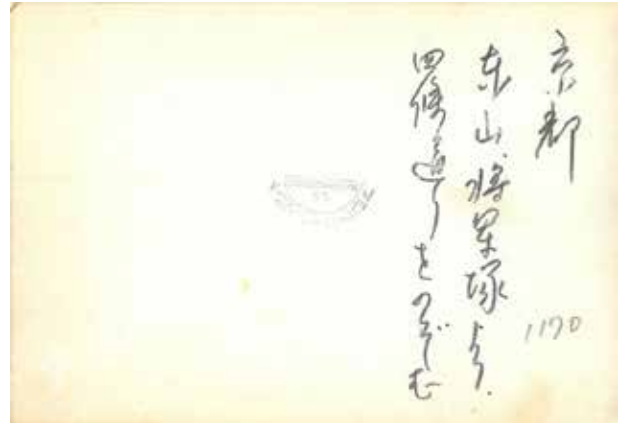 京都
東山将軍塚より
四條通りをのぞむ
1170